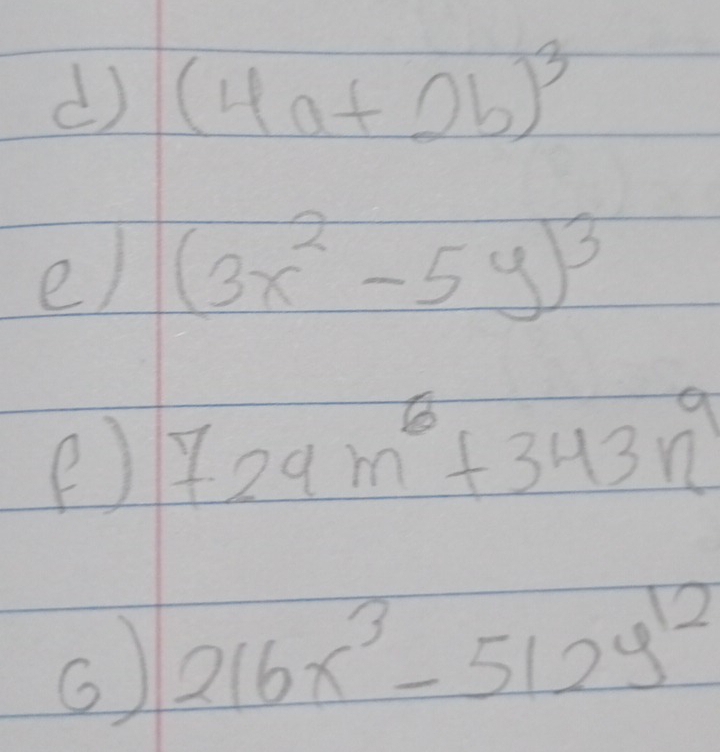 d) (4a + 2b)³
e) (3x² - 5y)³
f) 729m⁶ + 343n⁹
G) 216x³ - 512y¹²